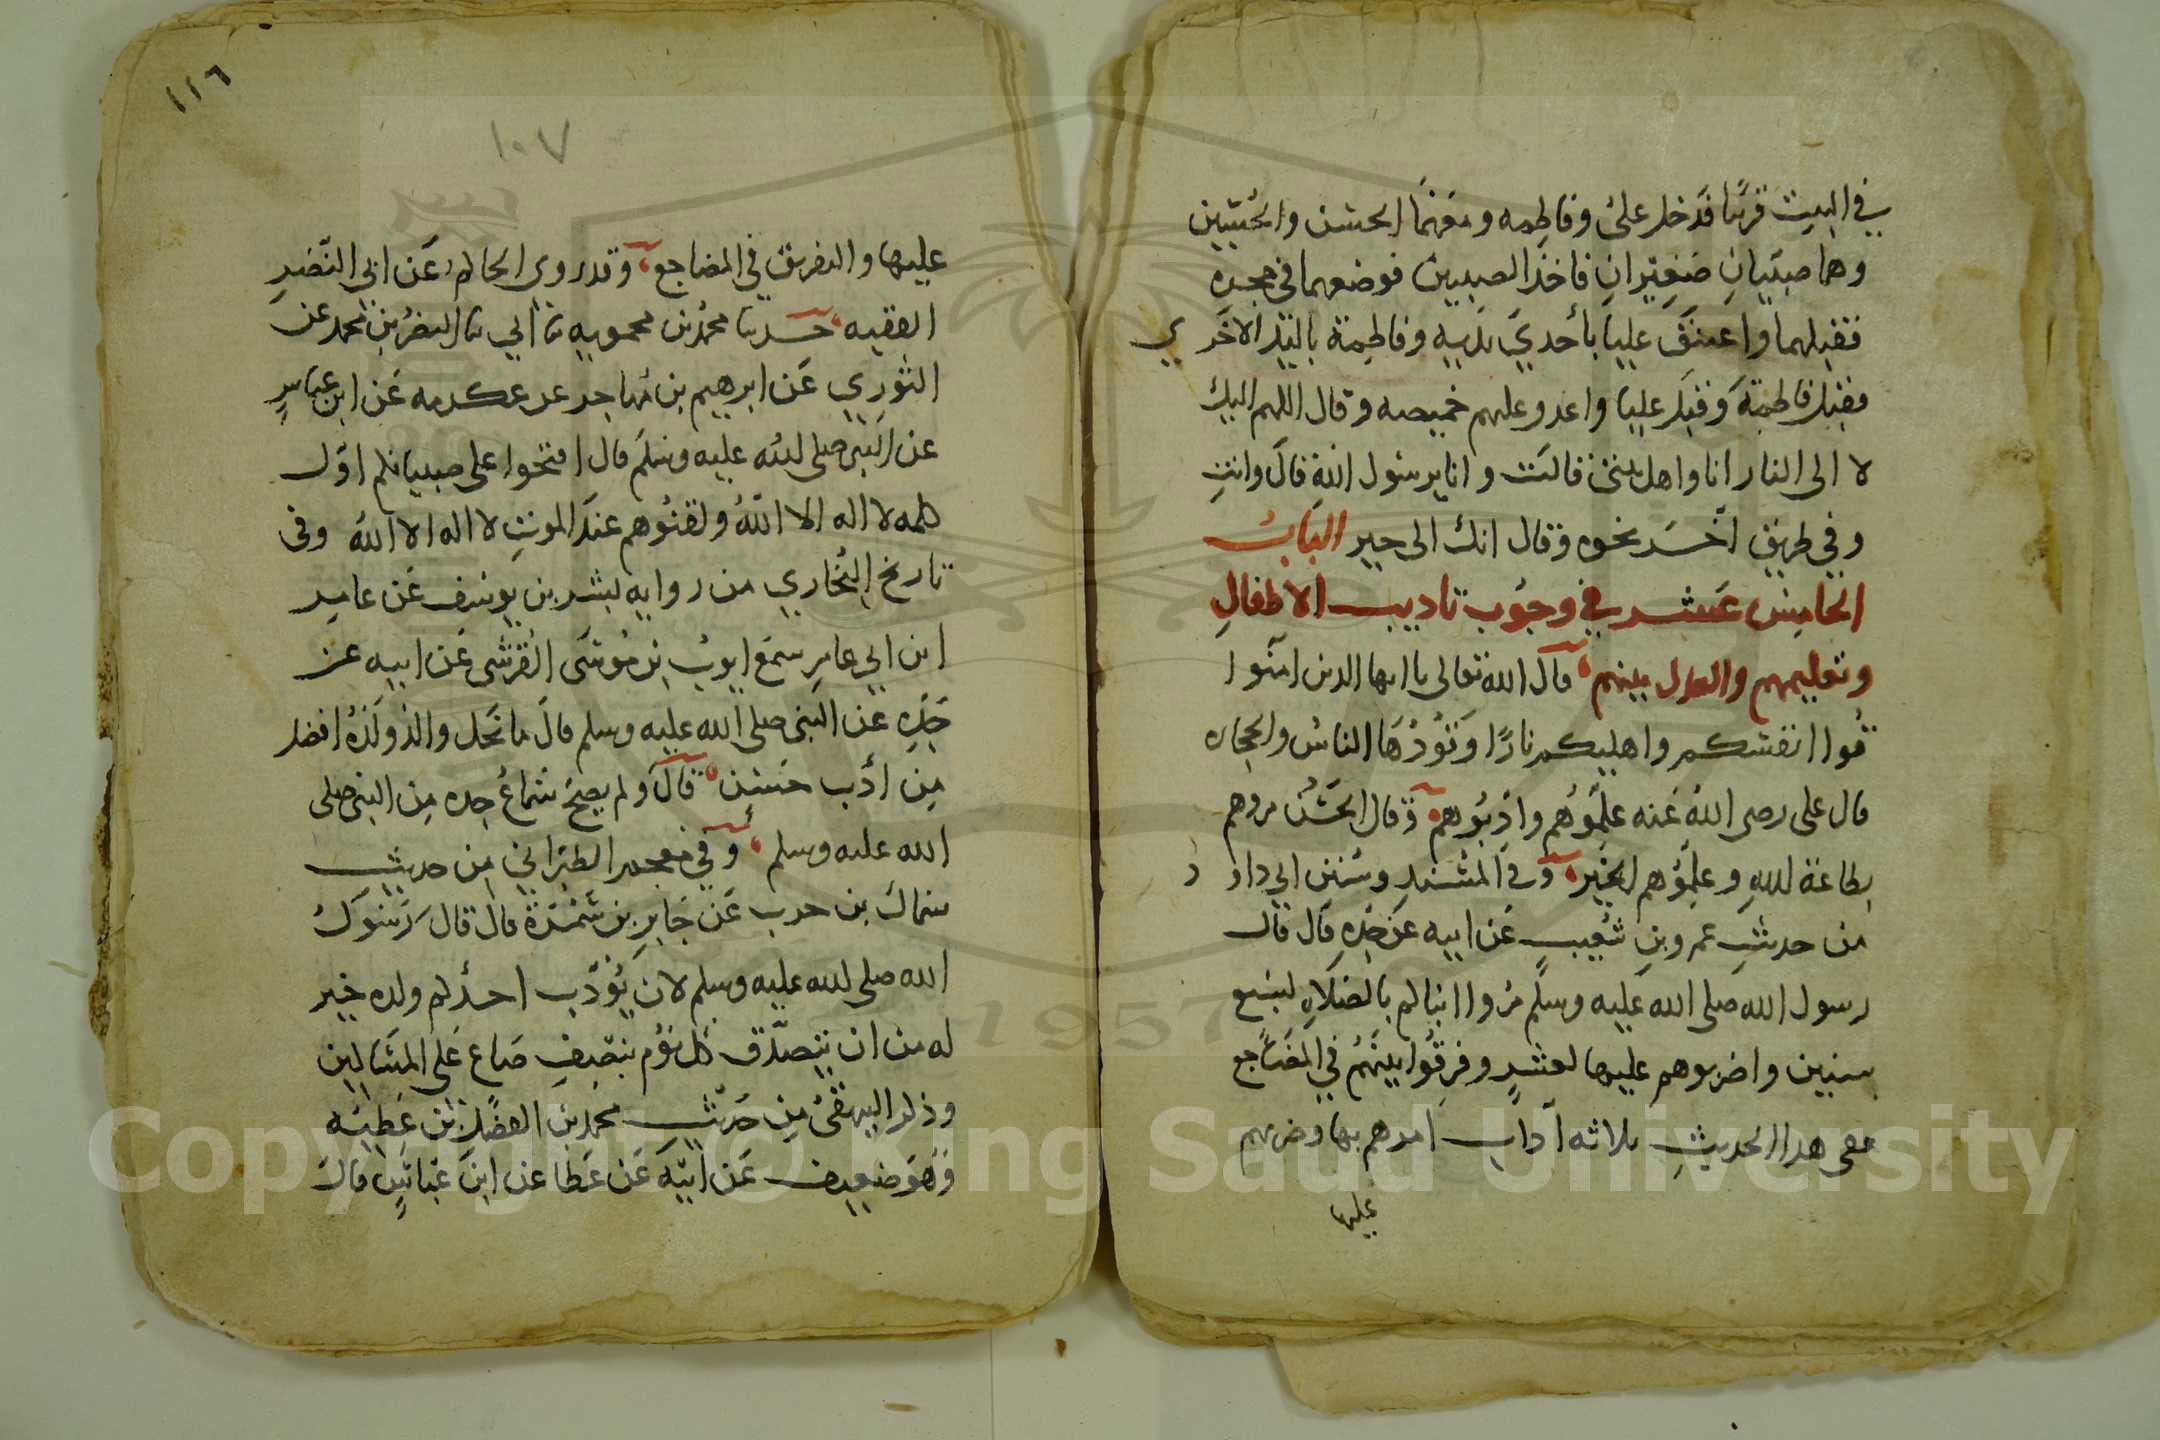 في البيت قريبا فدخل علي وفاطمه ومعهما الحسن والحسين
وهما صبيان صغيران فاخذ الصبيين فوضعهما في حجره
فقبلهما واعتنق عليا بأحدي يديه وفاطمة باليد الاخري
فقبل فاطمة وقبل عليا واغدو عليهم خميصه وقال اللهم اليك
لا الى النار انا واهل بيتي فقالت وانا يرسول الله قال وانت
وفي طريق اخر نحوه وقال انك الى خير الباب
الخامس عشر في وجوب تاديب الاطفال
وتعليمهم والعدل بينهم قال الله تعالى يا ايها الذين امنوا
قوا انفسكم واهليكم نارا وقودها الناس والحجاره
قال على رضى الله عنه علموهم وادبوهم وقال الحسن مروهم
بطاعة الله وعلموهم الخير وفي المسند وسنن ابي داود
من حديث عمرو بن شعيب عن ابيه عن جده قال قال
رسول الله صلى الله عليه وسلم مروا ابناكم بالصلاة لسبع
سنين واضربوهم عليها لعشر وفرقوا بينهم في المضاجع
ففى هدا الحديث ثلاثه آداب امرهم بها وضربهم
عليها
١١٦
١٠٧
عليها والتفريق في المضاجع وقد روى الحاكم عن ابي النضر
الفقيه حدثنا محمد بن محمويه ثنا ابي ثنا النضر بن محمد عن
الثوري عن ابرهيم بن مهاجر عن عكرمه عن ابن عباس
عن النبي صلى الله عليه وسلم قال افتحوا على صبيانكم اول
كلمه لا اله الا الله ولقنوهم عند الموت لا اله الا الله وفى
تاريخ البخاري من روايه بشر بن يوسف عن عامر
ابن ابي عامر سمع ايوب بن موسى القرشى عن ابيه عن
جده عن النبي صلى الله عليه وسلم قال ما نحل والد ولده افضل
من أدب حسن قال ولم يصح سماع جده من النبي صلى
الله عليه وسلم وفي معجم الطبراني من حديث
سماك بن حرب عن جابر بن سمرة قال قال رسول
الله صلى الله عليه وسلم لان يؤدب احدكم ولده خير
له من ان يتصدق كل يوم بنصف صاع على المساكين
وذكر البيهقى من حديث محمد بن الفضل بن عطيه
وهو ضعيف عن ابيه عن عطا عن ابن عباس قال
Copyright © King Saud University
1957